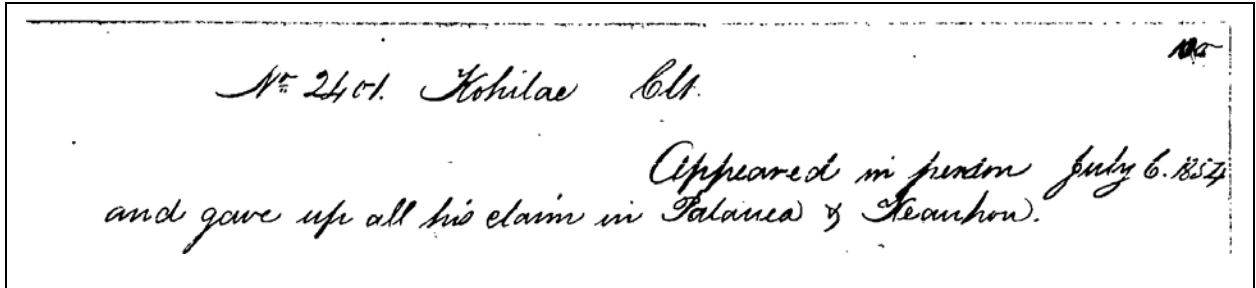 No. 2401. Kohilae Clt.
Appeared in person July 6. 1854
and gave up all his claim in Palauea & Keauhou.